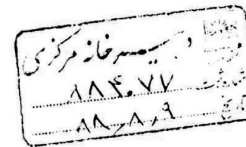 دبیرخانه مرکزی
۸۸۴۰۷۷
تاریخ ۸۸٫۸٫۹